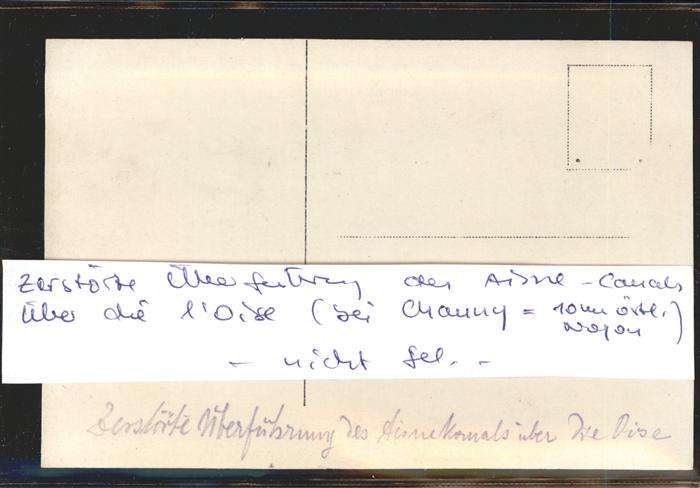 Zerstörte Überführung des Aisne-Canals
über die l'Oise (bei Chauny = 10 km östl. Noyon)
- nicht gel. -
Zerstörte Überführung des Aisnekanals über die Oise